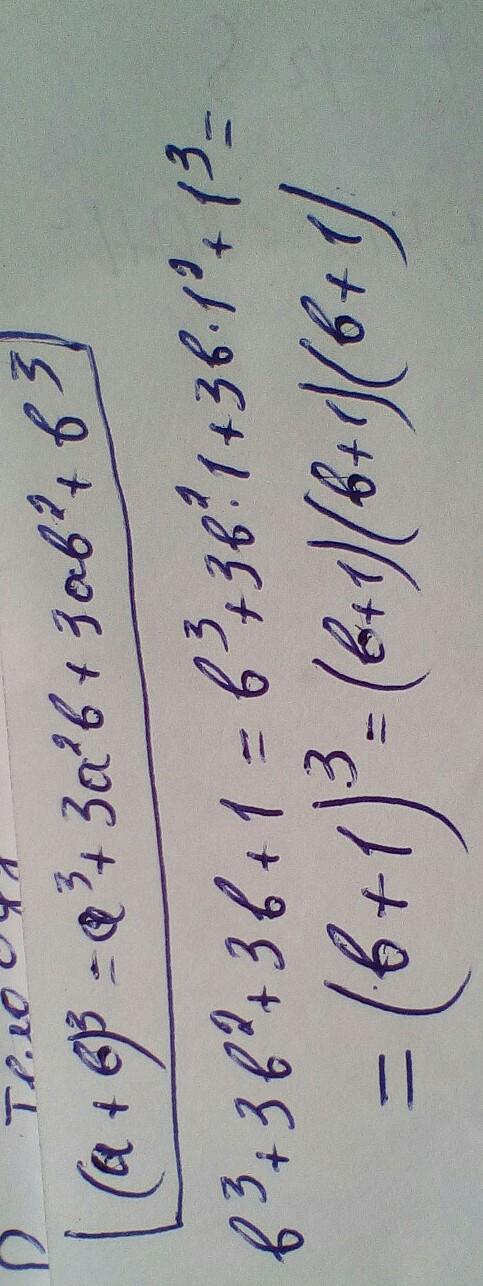 (a + b)³ = a³ + 3a²b + 3ab² + b³
b³ + 3b² + 3b + 1 = b³ + 3b²·1 + 3b·1² + 1³ =
= (b + 1)³ = (b + 1)(b + 1)(b + 1)